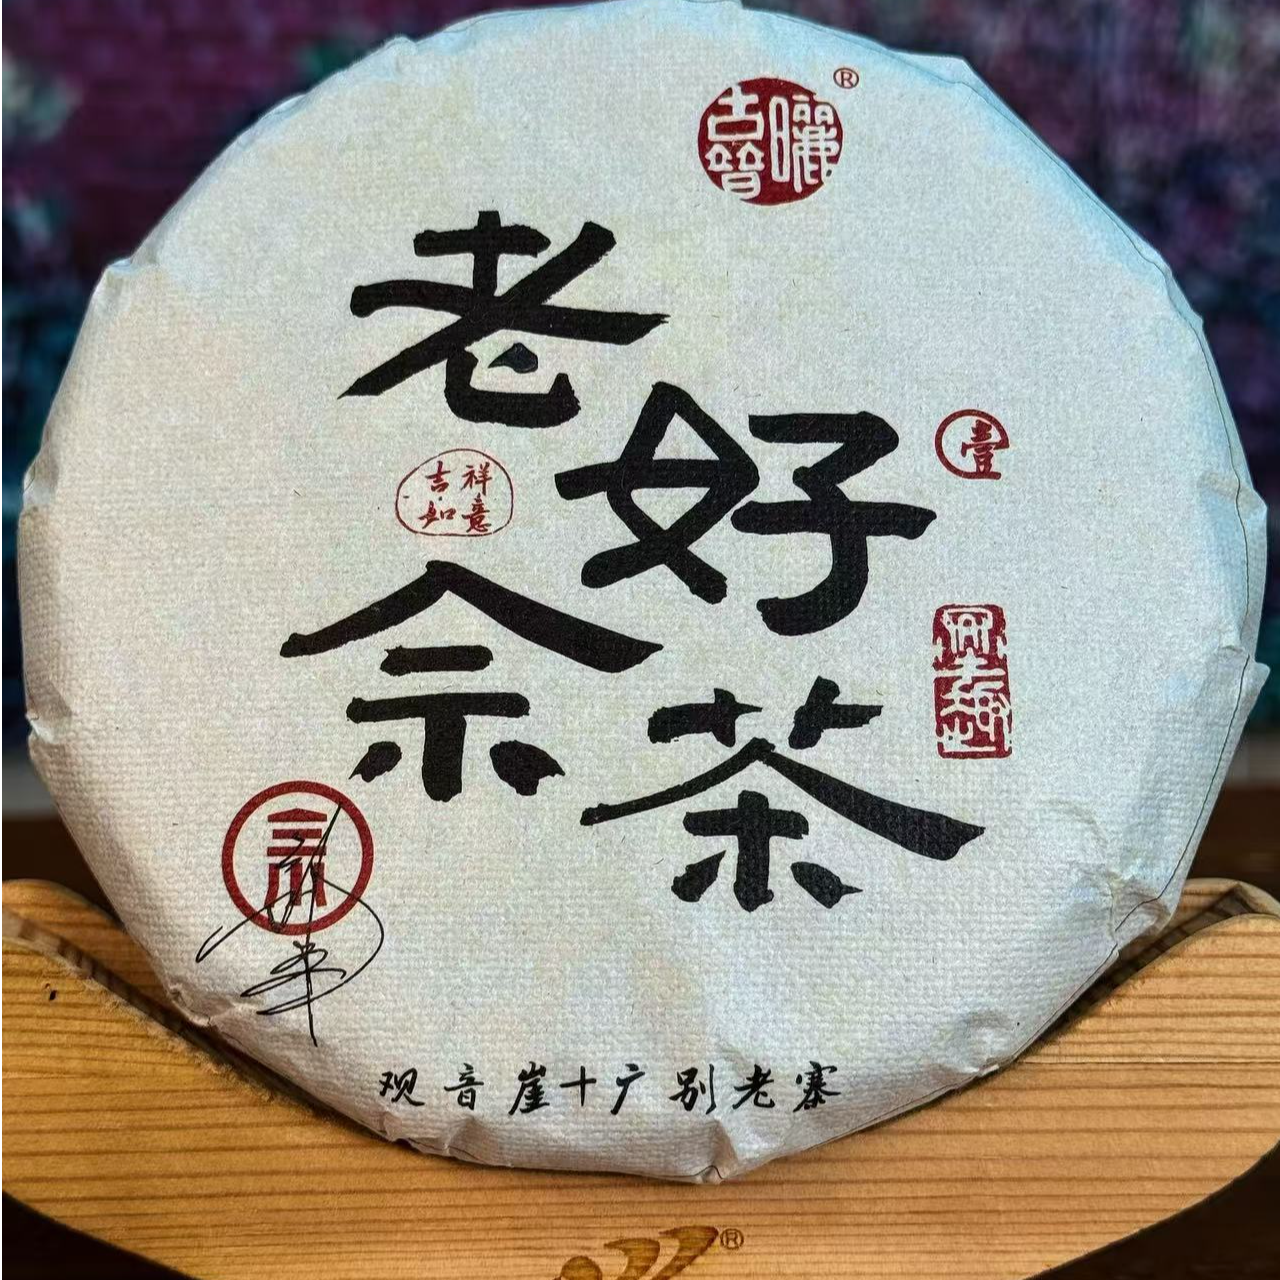 曬古晉
®
老佘
好茶
壹
吉祥
如意
佘
观音崖十广别老寨
®